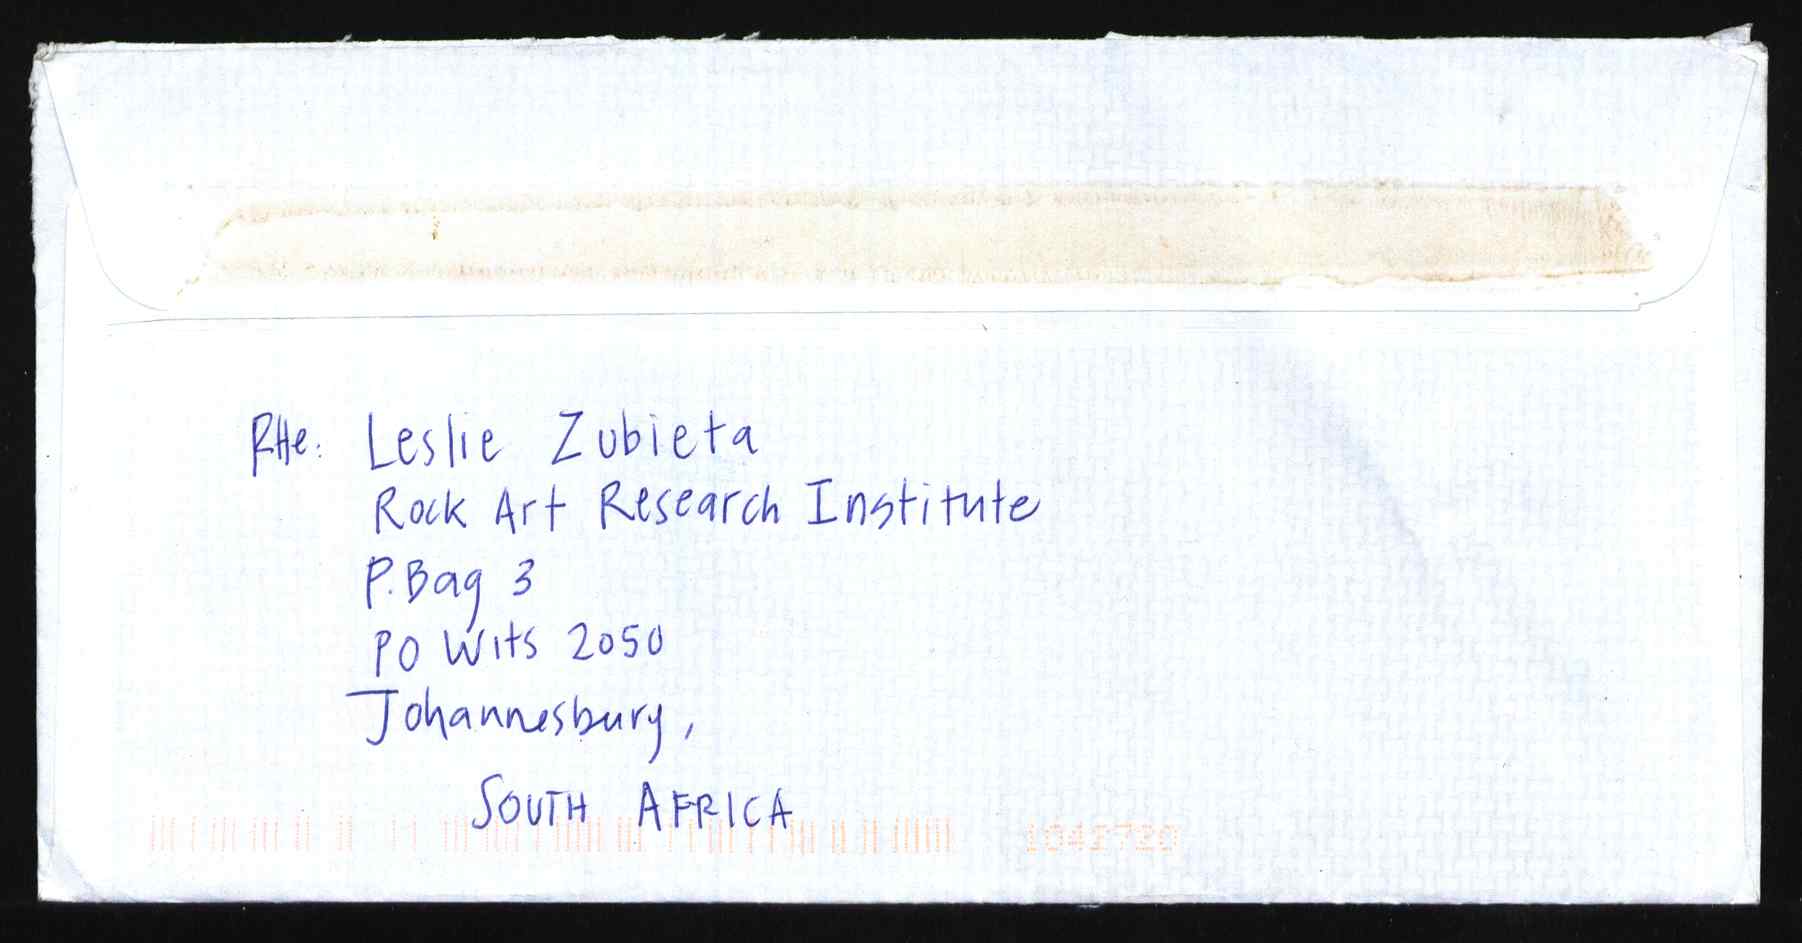 RHe: Leslie Zubieta
Rock Art Research Institute
P.Bag 3
PO Wits 2050
Johannesburg,
SOUTH AFRICA